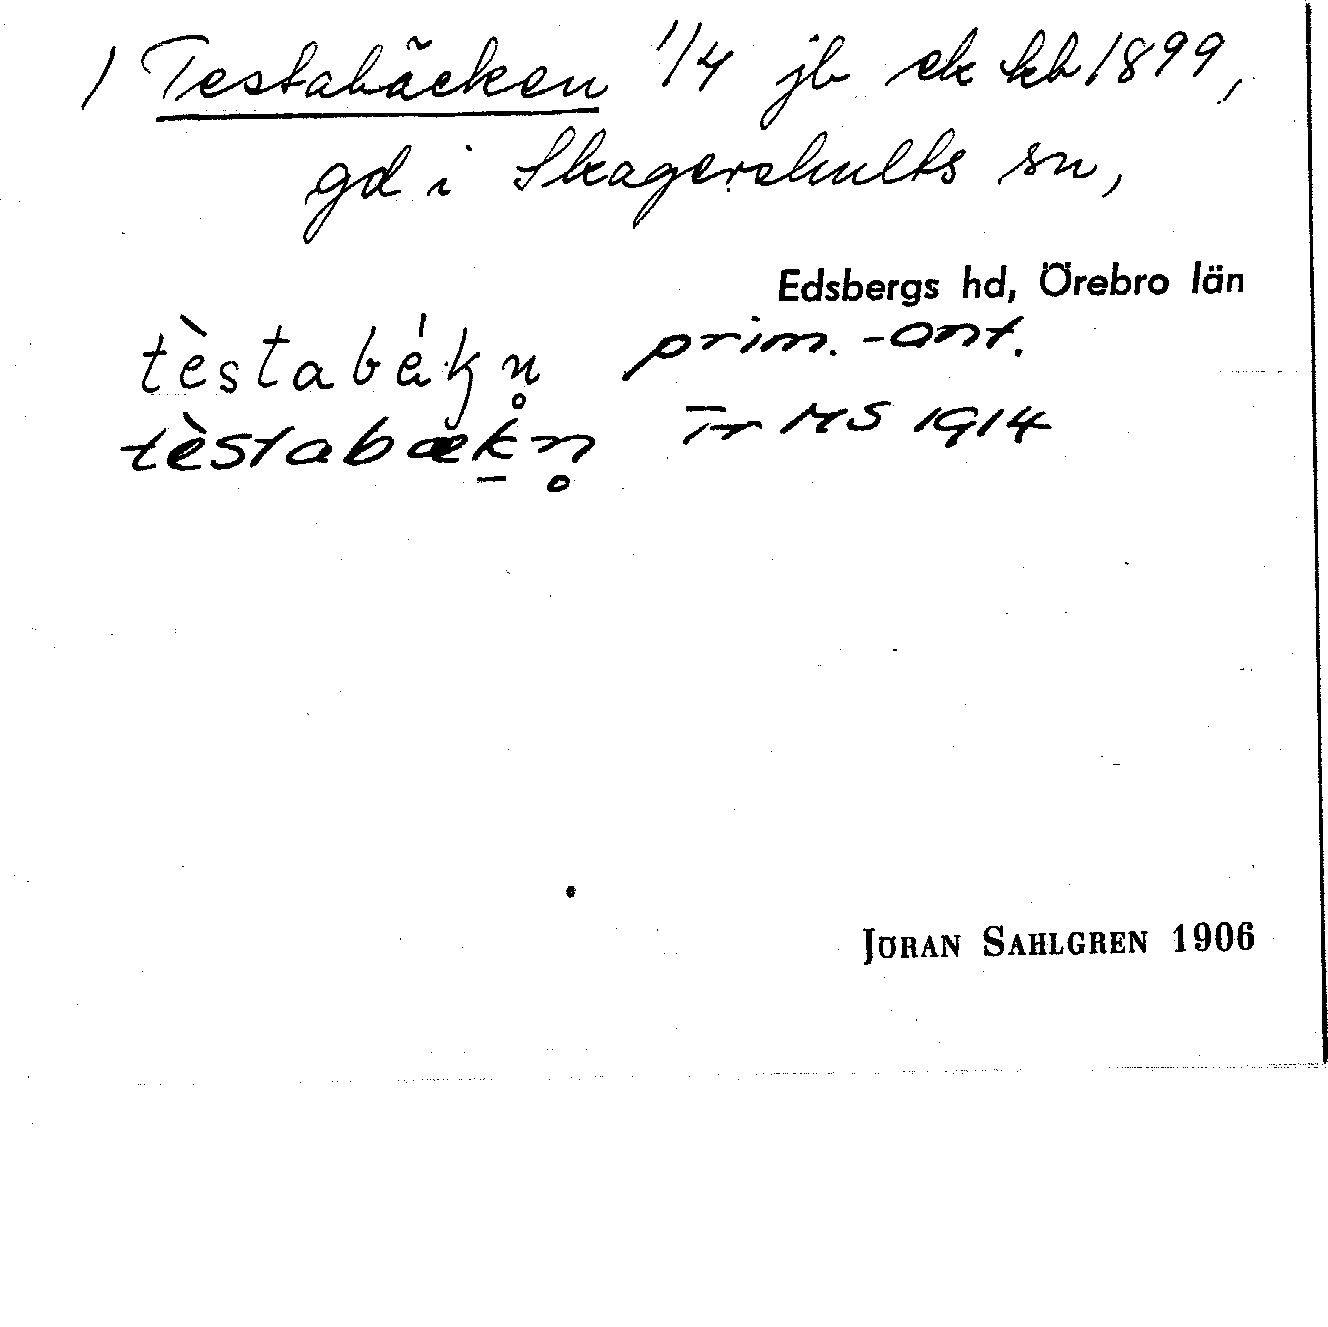 1 Testabäcken 1/4 jb ek kb 1899,
gd i Skagershults sn,
Edsbergs hd, Örebro län
tèstabék̨n̥ prim.-ant.
tèstabæḵn̥ īr MS 1914
JÖRAN SAHLGREN 1906